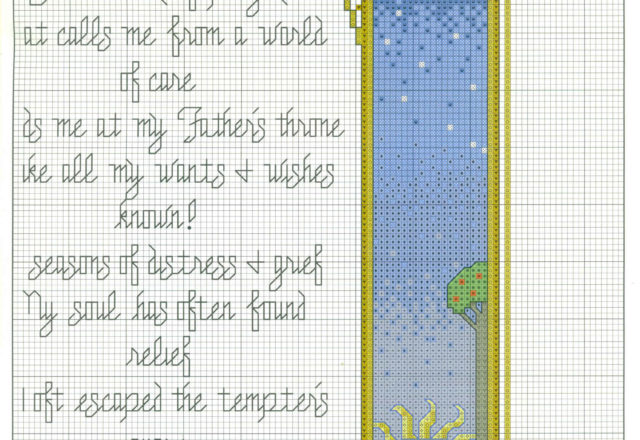 at calls me from a world
of care
ds me at my Father's throne
ike all my wants & wishes
known!
seasons of distress & grief
My soul has often found
relief
I oft escaped the tempter's